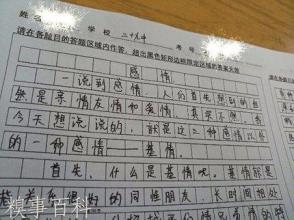 姓名 学校 二十九中 考号
请在各题目的答题区域内作答，超出黑色矩形边框限定区域的答案无效
感情
一说到感情，人们首先想到的自
然是亲情友情和爱情，其实不然，我
今天想说说的，就是这三种感情以外
的一种感情——基情。
首先，什么是基情呢。基情就是
的同性朋友，长时间相处
糗事百科